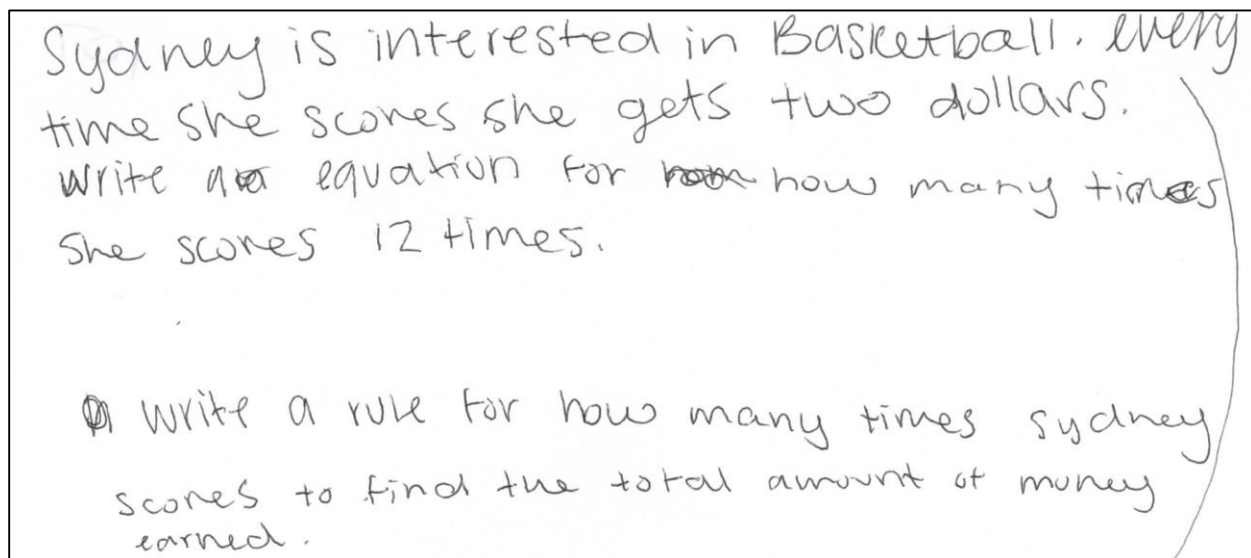 Sydney is interested in Basketball. every
time she scores she gets two dollars.
write a equation for how many times
she scores 12 times.
write a rule for how many times sydney
scores to find the total amount of money
earned.